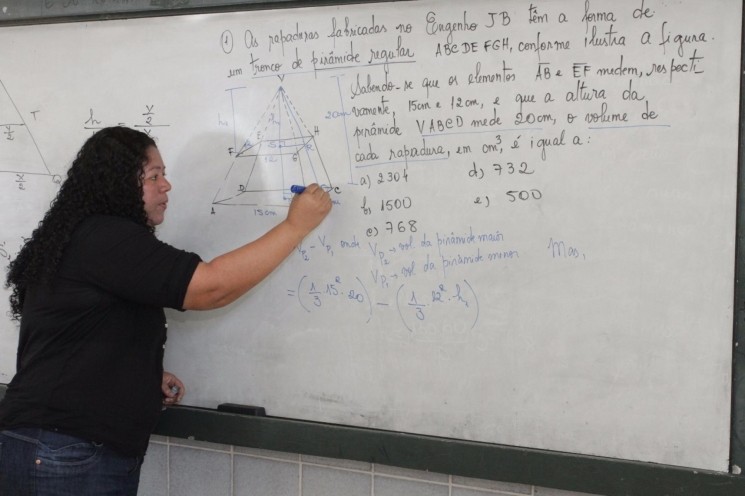 ① As rapaduras fabricadas no Engenho JB têm a forma de
um tronco de pirâmide regular ABCDEFGH, conforme ilustra a figura.
Sabendo-se que os elementos AB e EF medem, respecti
vamente, 15cm e 12cm, e que a altura da
pirâmide VABCD mede 20cm, o volume de
cada rapadura, em cm³, é igual a:
a) 2304 d) 732
b) 1500 e) 500
c) 768
V
20cm
H
E
F
G
12
D
C
A
15cm
V_P2 - V_P1 onde V_P2 → vol da pirâmide maior
V_P1 → vol da pirâmide menor Mas,
= (1/3 · 15² · 20) - (1/3 · 12² · h₁)
T
h = y/2
y/2
x/2
Q